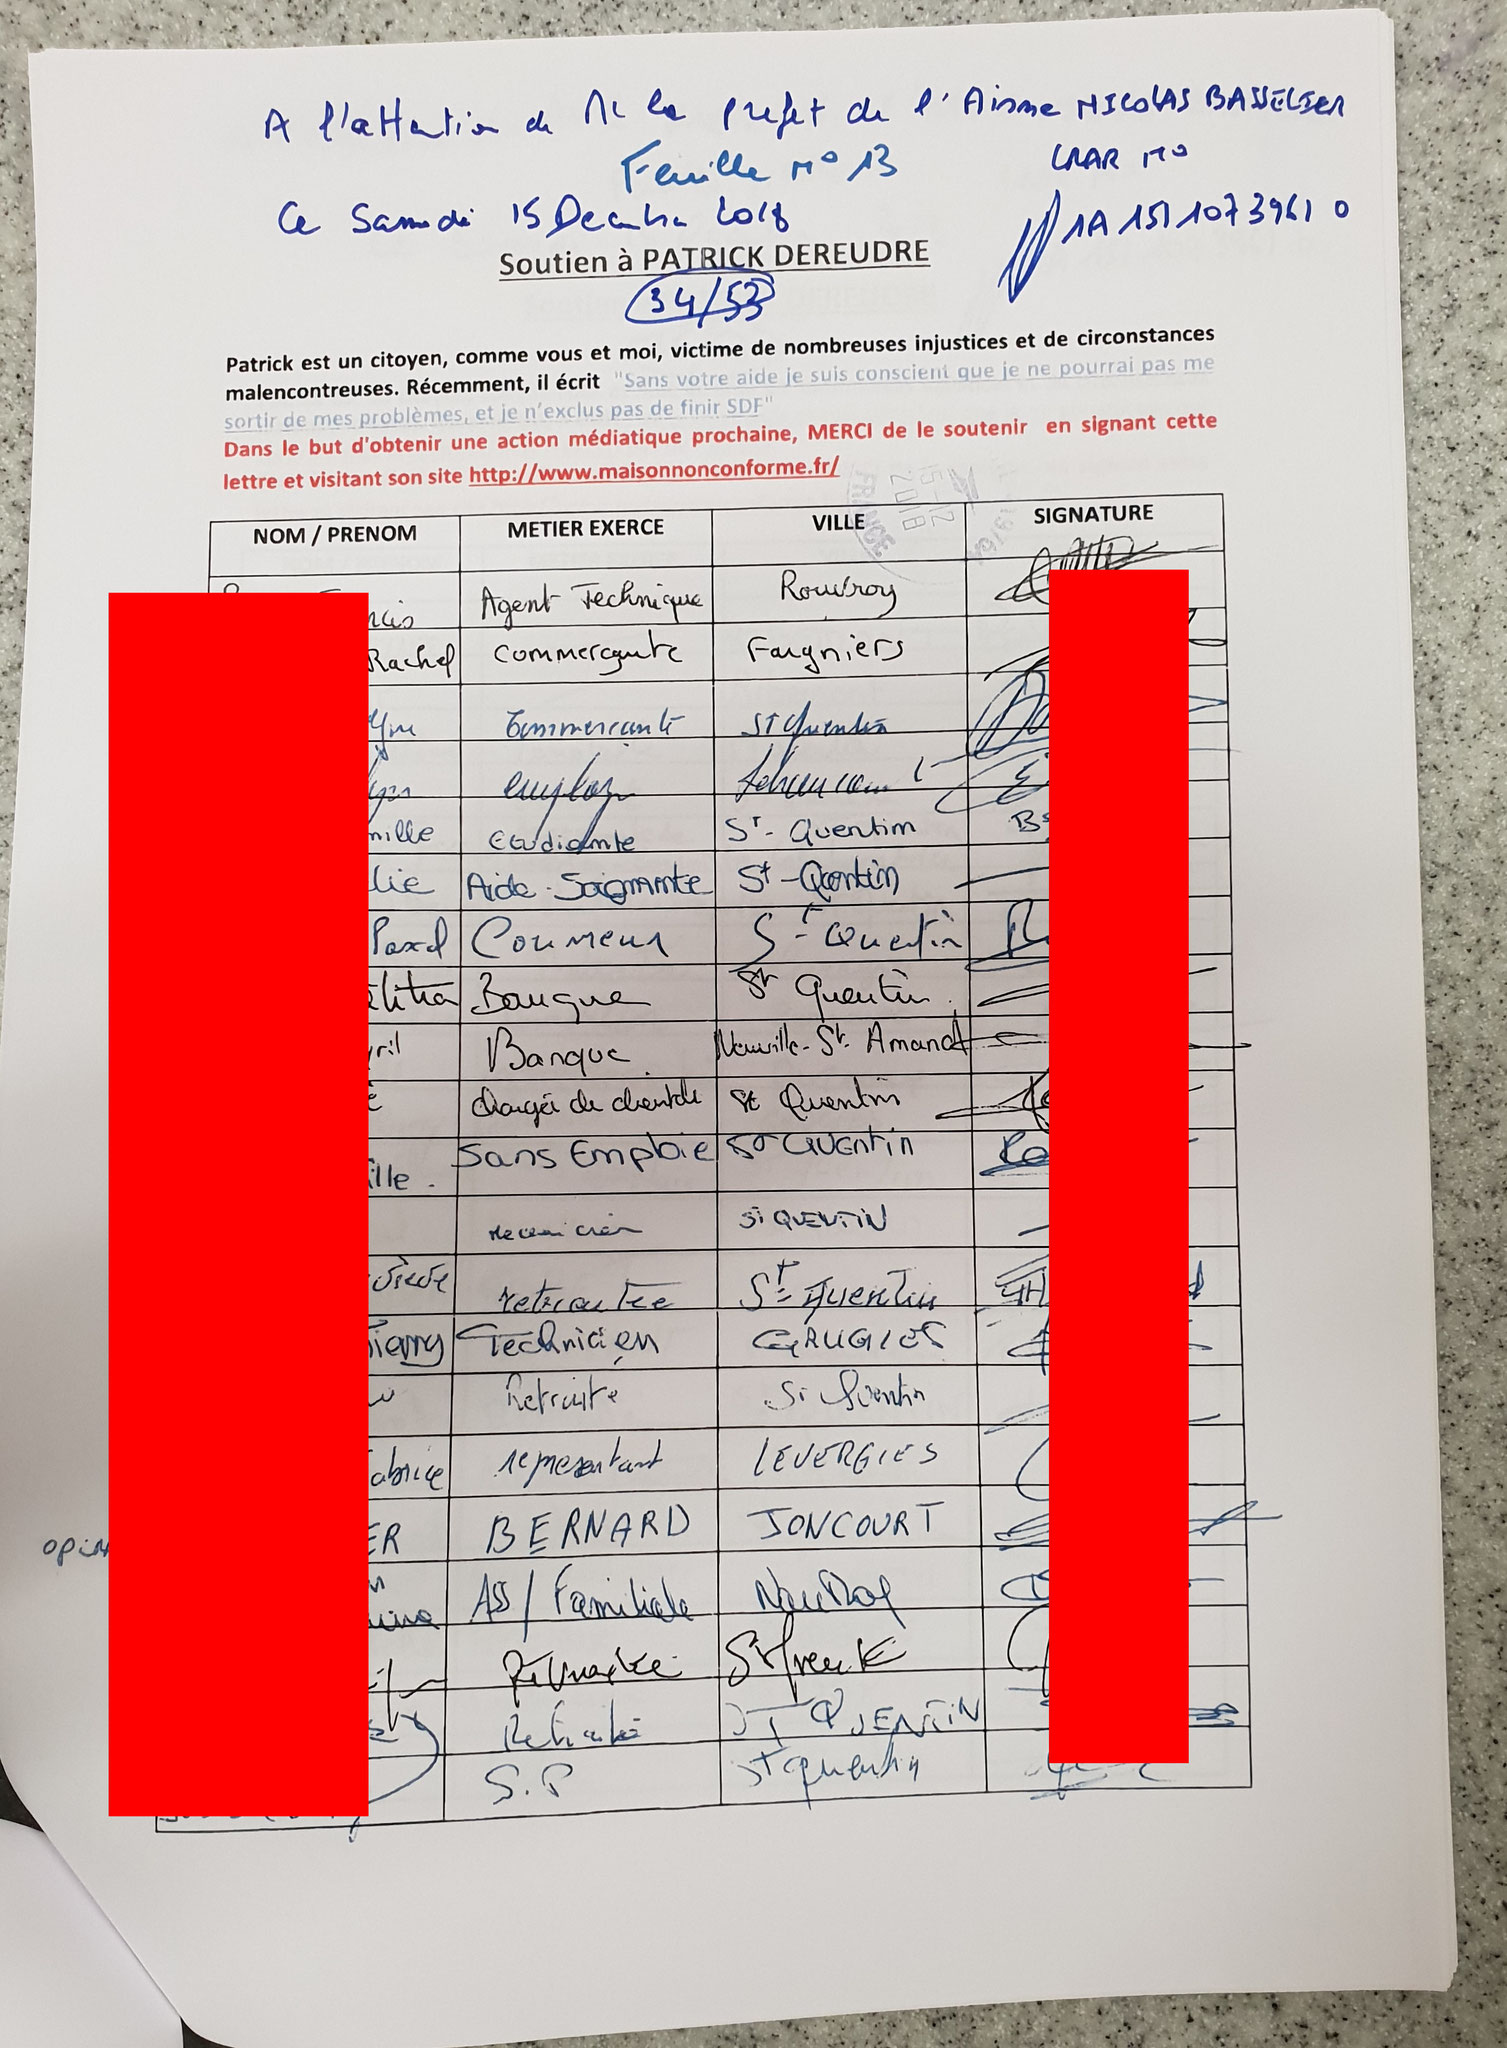 A l'attention de M le prefet de l'Aisne NICOLAS BASSELIER
Feuille n° 13
LRAR n°
Ce Samedi 15 Decembre 2018
1A 151 107 3961 0
Soutien à PATRICK DEREUDRE
34/53
Patrick est un citoyen, comme vous et moi, victime de nombreuses injustices et de circonstances
malencontreuses. Récemment, il écrit "Sans votre aide je suis conscient que je ne pourrai pas me
sortir de mes problèmes, et je n'exclus pas de finir SDF"
Dans le but d'obtenir une action médiatique prochaine, MERCI de le soutenir en signant cette
lettre et visitant son site http://www.maisonnonconforme.fr/
FRANCE
15-12
2018
NOM / PRENOM METIER EXERCE VILLE SIGNATURE
Agent Technique Rouvroy
Rachel commerçante Fargniers
commerçante St Quentin
Etudiante St-Quentin
Aide-Soignante St-Quentin
Couvreur St Quentin
Banque St Quentin
Banque Neuville-St. Amand
chargée de clientèle St Quentin
Sans Emploie St QUENTIN
ille.
mecanicien St QUENTIN
retraitée St Quentin
Technicien GRUGIES
Retraité St Quentin
representant LEVERGIES
ER BERNARD JONCOURT
Ass/Familiale
Retraité St QUENTIN
S.P St quentin